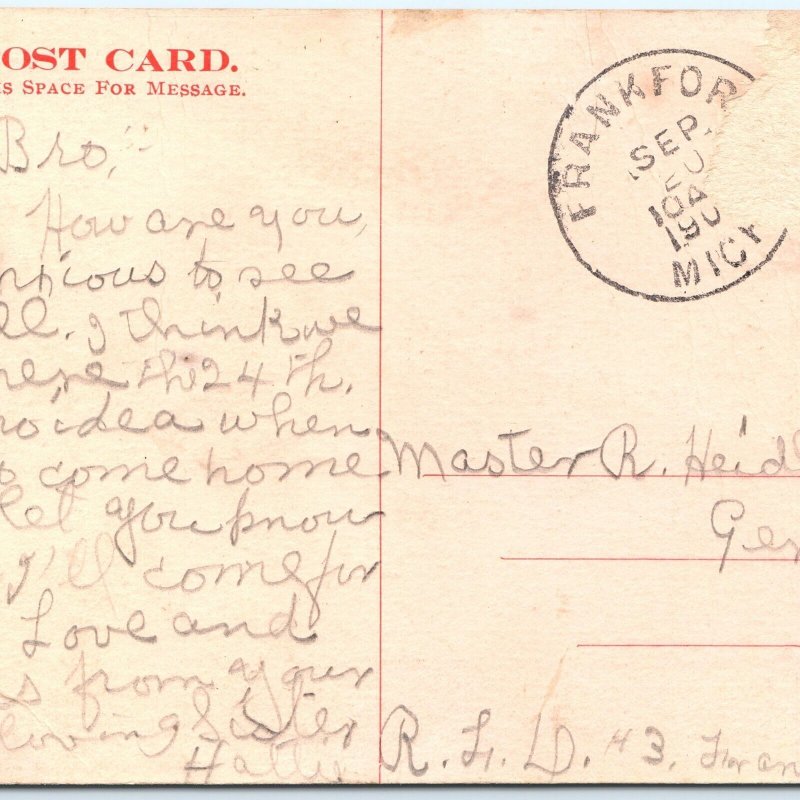 OST CARD.
IS SPACE FOR MESSAGE.
Bro,
How are you,
xious to see
ll. I think we
here the 24th.
no idea when
o come home
let you know
I'll come for
Love and
s from your
loving Sister
Hattie
FRANKFOR
SEP.
20
10A
190
MICH
Master R. Heidl
Gen
R. F. D. #3. Fran